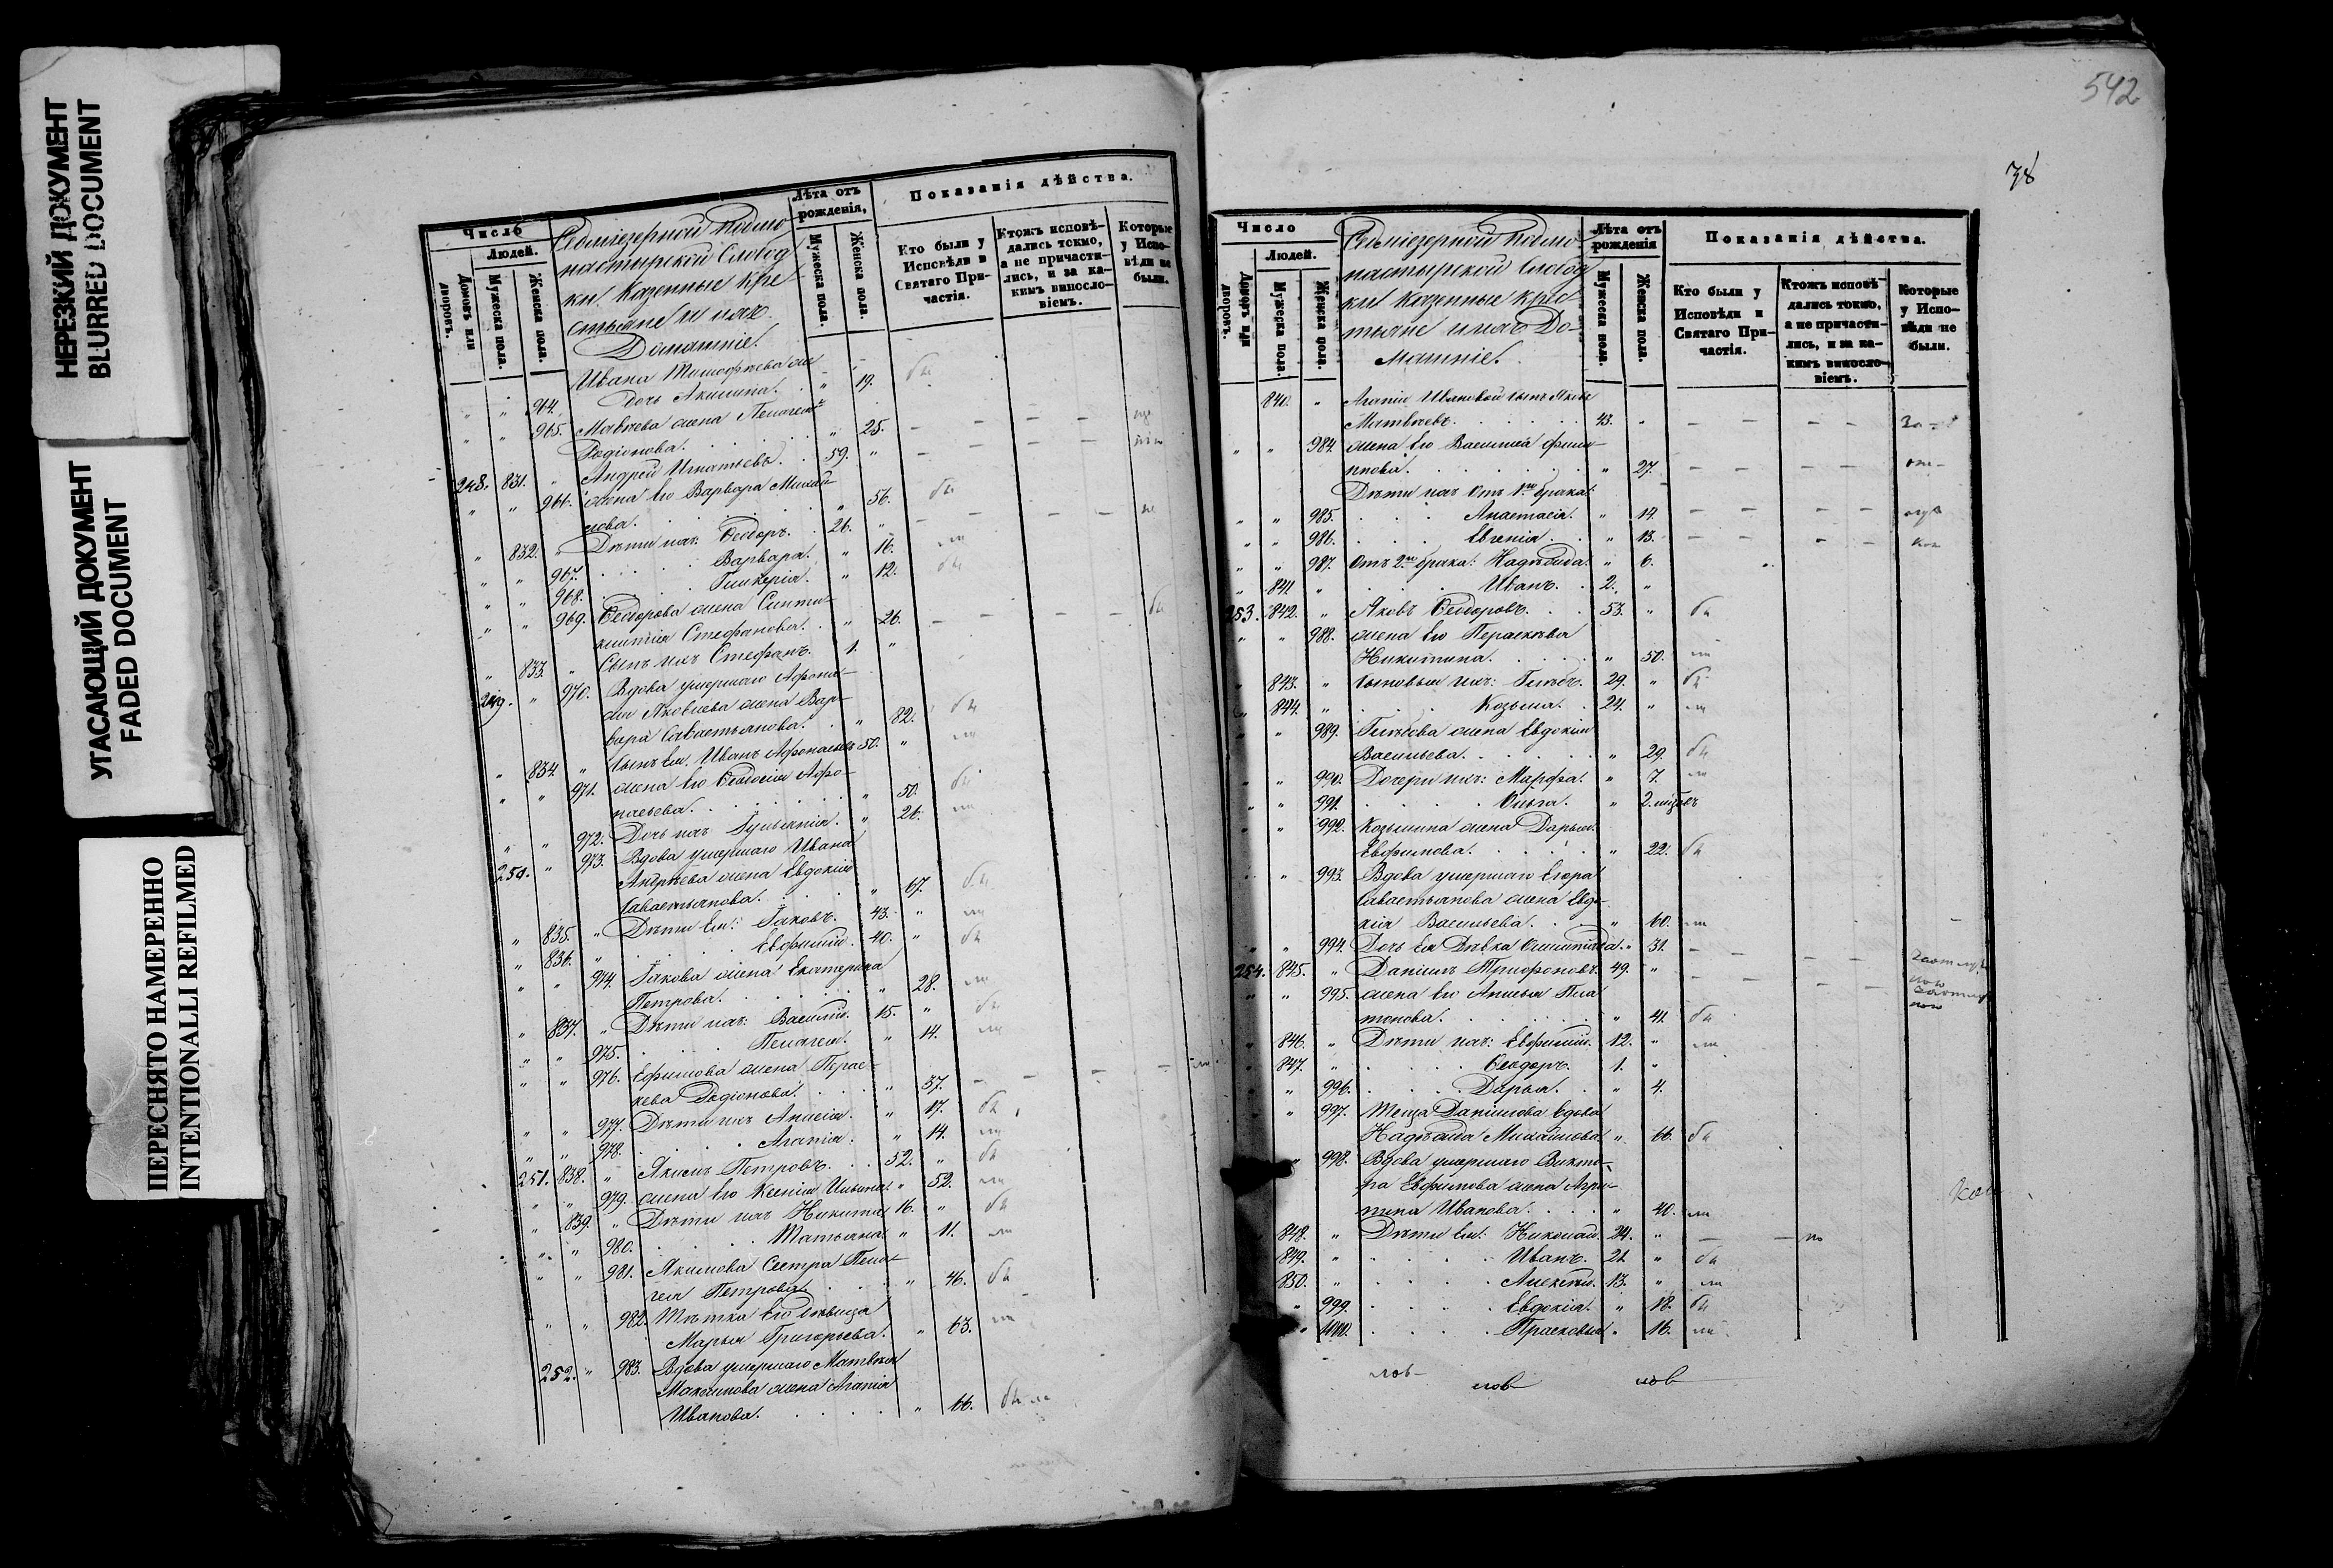 НЕРЕЗКИЙ ДОКУМЕНТ
BLURRED DOCUMENT
УГАСАЮЩИЙ ДОКУМЕНТ
FADED DOCUMENT
ПЕРЕСНЯТО НАМЕРЕННО
INTENTIONALLI REFILMED
Число
Людей.
Домовъ или дворовъ.
Мужеска пола.
Женска пола.
Седміезерной Подмо-
настырской Слобод
ки Казенные Кре
стьяне и ихъ
Домашніе.
Лѣта отъ рожденія,
Мужеска пола.
Женска пола.
Показанія дѣйства.
Кто были у Исповѣди и Святаго Причастія.
Ктожъ исповѣ-
дались токмо,
а не причасти-
лись, и за ка-
кимъ винословіемъ.
Которые
у Испо-
вѣди не
были.
Ивана Тимофѣева
" " 964. Дочь Акилина. " 19. бы
" " 965. Матвѣева жена Пелагея
Родіонова. " 25. – – – –
248. 831. " Андрей Игнатьевъ. 59. " – – – –
" " 966. жена его Варвара Михай-
лова. " 56. бы
" 832. " Дѣти ихъ: Ѳеодоръ. 26. " – – – –
" " 967. Варвара. " 16. ли
" " 968. Гликерія. " 12. бы
" " 969. Ѳеодорова жена Синкли-
тикія Стефанова. " 26. – – – –
" 833. " Сынъ ихъ Стефанъ. 1. "
249. " 970. Вдова умершаго Афона-
сія Яковлева жена Вар-
вара Савастьянова. " 82. бы
" 834. " Сынъ ея Иванъ Афонасьевъ 50. " ли
" " 971. жена его Ѳеодосія Афо-
насьева. " 50. бы
" " 972. Дочь ихъ Іуліанія. " 26. ли
250. " 973. Вдова умершаго Ивана
Андрѣева жена Евдокія
Савастьянова. " 67. бы
" 835. " Дѣти ея: Іаковъ. 43. " ли
" 836. " Евфимій. 40. " бы
" " 974. Іакова жена Екатерина
Петрова. " 28. ли
" 837. " Дѣти ихъ: Василій. 15. " бы
" " 975. Пелагея. " 14. ли
" " 976. Ефимова жена Парас-
кева Родіонова. " 37. – – – –
" " 977. Дѣти ихъ Анисія. " 17. бы
" " 978. Агапія. " 14. ли
251. 838. " Якимъ Петровъ. 52. " бы
" " 979. жена его Ксенія Ильина. " 52. ли
" 839. " Дѣти ихъ Никита 16. " бы
" " 980. Татьяна " 11. ли
" " 981. Якимова Сестра Пела-
гея Петрова " 46. бы
" " 982. Тѣтка Его Дѣвица
Марья Григорьева. " 63. ли
252. " 983. Вдова умершаго Матвѣя
Максимова жена Агапія
Иванова. " 66. бы ли
542
78
Число
Людей.
Домовъ или дворовъ.
Мужеска пола.
Женска пола.
Седміезерной Подмо-
настырской Слобод
ки Казенные Крес
тьяне и ихъ До-
машніе.
Лѣта отъ рожденія
Мужеска пола.
Женска пола.
Показанія дѣйства.
Кто были у
Исповѣди и
Святаго При-
частія.
Ктожъ исповѣ-
дались токмо,
а не причасти-
лись, и за ка-
кимъ винословіемъ.
Которые
у Испо-
вѣди не
были.
840. " Агапіи Ивановой сынъ Яковъ
Матвѣевъ. 43. " – – – –
" " 984. жена его Василиса Филип-
пова. " 27. – – – –
Дѣти ихъ отъ 1го брака:
" " 985. Анастасія. " 14. – – – –
" " 986. Евгенія. " 13. – – – –
" " 987. Отъ 2го брака: Надѣжда. " 6.
" 841 " Иванъ. 2. "
253. 842. " Яковъ Ѳеодоровъ. 53. " бы
" " 988. жена его Параскѣва
Никитина. " 50. ли
" 843. " Сыновья ихъ: Глѣбъ. 29. " бы
" 844. " Козьма. 24. " ли
" " 989. Глѣбова жена Евдокія
Васильева. " 29. бы
" " 990. Дочери ихъ: Марфа. " 7. ли
" " 991. Ольга. " 2.
" " 992. Козьмина жена Дарья
Евфимова. " 22. бы
" " 993. Вдова умершаго Егора
Савастьянова жена Евдо-
кія Васильева. " 60. ли
" " 994. Дочь ея Дѣвка Олимпіада. " 31. – – – –
254. 845. " Даніилъ Трифоновъ. 49. " – – – –
" " 995. жена его Анисья Пла
тонова. " 41. бы
" 846. " Дѣти ихъ: Евфимій. 12. " ли
847. " Ѳеодоръ. 1. "
" 996. Дарья. " 4.
" 997. Теща Даніилова вдова
Надѣжда Михайлова " 66. бы
" 998. Вдова умершаго Викто-
ра Евфимова жена Агри-
пина Иванова. " 40. ли
848. " Дѣти ея: Николай. 24. " – –
849. " Иванъ. 21 " бы
850. " Алексѣй. 13. " ли
" 999. Евдокія. " 18. бы
" 1000. Прасковья. " 16. ли